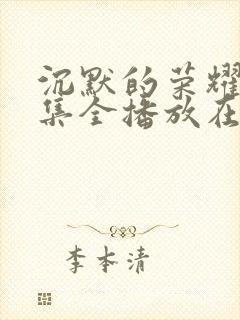 沉默的荣耀
集全播放在
李本清